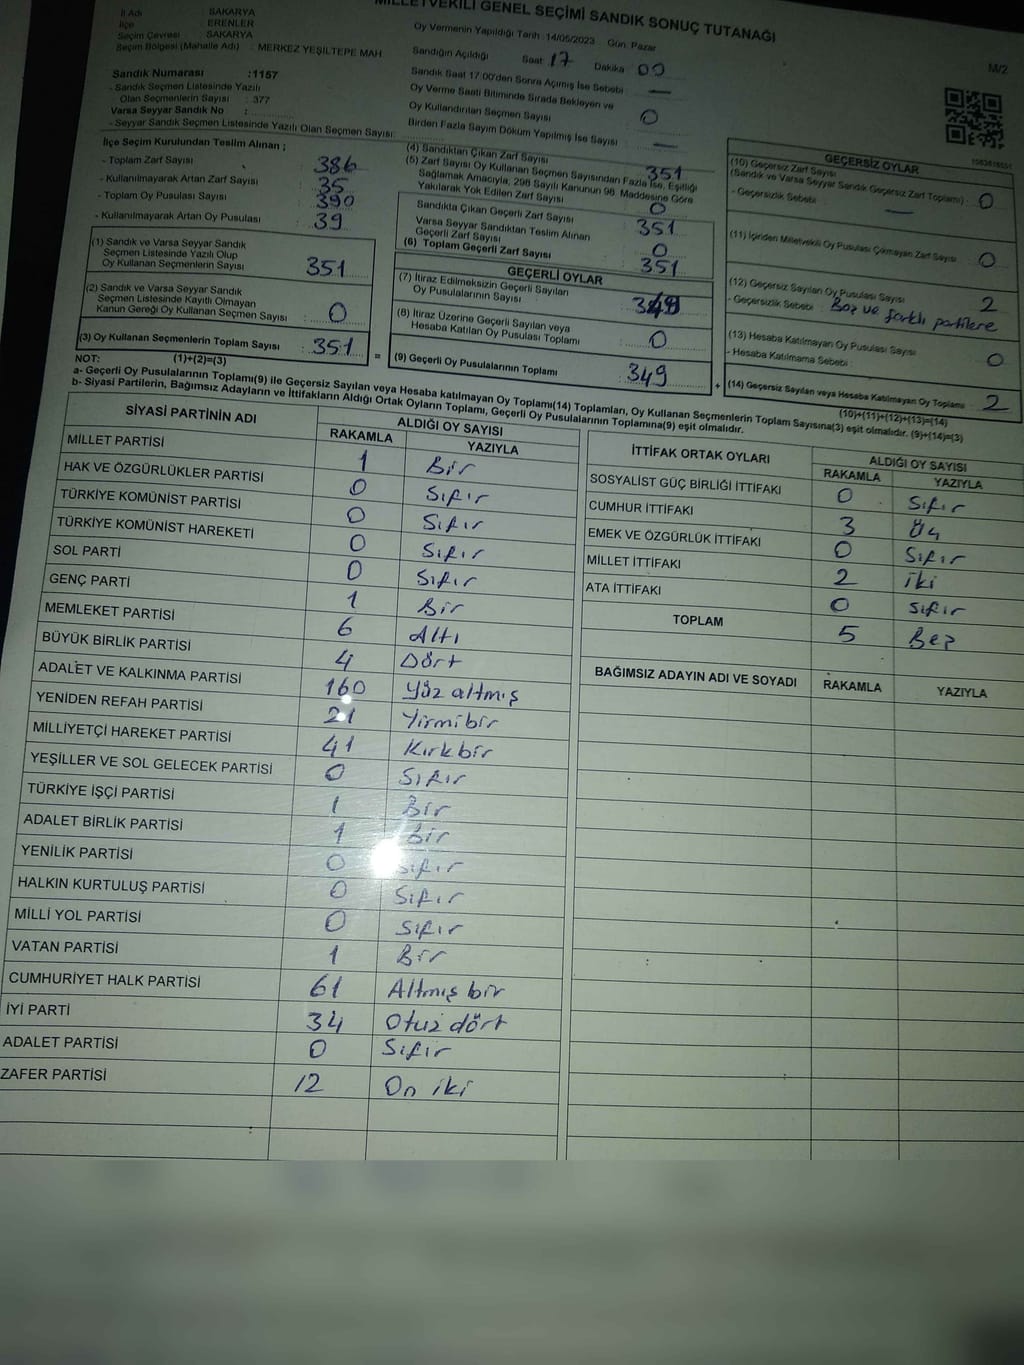 MİLLETVEKİLİ GENEL SEÇİMİ SANDIK SONUÇ TUTANAĞI
İl Adı : SAKARYA
İlçe : ERENLER
Seçim Çevresi : SAKARYA
Seçim Bölgesi (Mahalle Adı) : MERKEZ YEŞİLTEPE MAH
Oy Vermenin Yapıldığı Tarih :14/05/2023 Gün: Pazar
Sandığın Açıldığı Saat 17 Dakika 00
M/2
Sandık Numarası :1157
- Sandık Seçmen Listesinde Yazılı
Olan Seçmenlerin Sayısı : 377
Varsa Seyyar Sandık No :
- Seyyar Sandık Seçmen Listesinde Yazılı Olan Seçmen Sayısı:
Sandık Saat 17.00'den Sonra Açımış İse Sebebi : —
Oy Verme Saati Bitiminde Sırada Bekleyen ve
Oy Kullandırılan Seçmen Sayısı : 0
Birden Fazla Sayım Döküm Yapılmış İse Sayısı : —
İlçe Seçim Kurulundan Teslim Alınan ;
- Toplam Zarf Sayısı : 386
- Kullanılmayarak Artan Zarf Sayısı : 35
- Toplam Oy Pusulası Sayısı : 390
- Kullanılmayarak Artan Oy Pusulası : 39
(1) Sandık ve Varsa Seyyar Sandık
Seçmen Listesinde Yazılı Olup
Oy Kullanan Seçmenlerin Sayısı : 351
(2) Sandık ve Varsa Seyyar Sandık
Seçmen Listesinde Kayıtlı Olmayan
Kanun Gereği Oy Kullanan Seçmen Sayısı : 0
(3) Oy Kullanan Seçmenlerin Toplam Sayısı : 351
(4) Sandıktan Çıkan Zarf Sayısı : 351
(5) Zarf Sayısı Oy Kullanan Seçmen Sayısından Fazla İse, Eşitliği
Sağlamak Amacıyla, 298 Sayılı Kanunun 98. Maddesine Göre
Yakılarak Yok Edilen Zarf Sayısı : 0
Sandıkta Çıkan Geçerli Zarf Sayısı : 351
Varsa Seyyar Sandıktan Teslim Alınan
Geçerli Zarf Sayısı : 0
(6) Toplam Geçerli Zarf Sayısı : 351
GEÇERLİ OYLAR
(7) İtiraz Edilmeksizin Geçerli Sayılan
Oy Pusulalarının Sayısı : 349
(8) İtiraz Üzerine Geçerli Sayılan veya
Hesaba Katılan Oy Pusulası Toplamı : 0
= (9) Geçerli Oy Pusulalarının Toplamı : 349 +
GEÇERSİZ OYLAR
(10) Geçersiz Zarf Sayısı
(Sandık ve Varsa Seyyar Sandık Geçersiz Zarf Toplamı) : 0
- Geçersizlik Sebebi : —
(11) İçinden Milletvekili Oy Pusulası Çıkmayan Zarf Sayısı : 0
(12) Geçersiz Sayılan Oy Pusulası Sayısı : 2
- Geçersizlik Sebebi : Boş ve farklı partilere
(13) Hesaba Katılmayan Oy Pusulası Sayısı : 0
- Hesaba Katılmama Sebebi :
(14) Geçersiz Sayılan veya Hesaba Katılmayan Oy Toplamı : 2
NOT: (1)+(2)=(3)
(10)+(11)+(12)+(13)=(14)
a- Geçerli Oy Pusulalarının Toplamı(9) ile Geçersiz Sayılan veya Hesaba katılmayan Oy Toplamı(14) Toplamları, Oy Kullanan Seçmenlerin Toplam Sayısına(3) eşit olmalıdır. (9)+(14)=(3)
b- Siyasi Partilerin, Bağımsız Adayların ve İttifakların Aldığı Ortak Oyların Toplamı, Geçerli Oy Pusulalarının Toplamına(9) eşit olmalıdır.
SİYASİ PARTİNİN ADI ALDIĞI OY SAYISI
RAKAMLA YAZIYLA
MİLLET PARTİSİ 1 Bir
HAK VE ÖZGÜRLÜKLER PARTİSİ 0 Sıfır
TÜRKİYE KOMÜNİST PARTİSİ 0 Sıfır
TÜRKİYE KOMÜNİST HAREKETİ 0 Sıfır
SOL PARTİ 0 Sıfır
GENÇ PARTİ 1 Bir
MEMLEKET PARTİSİ 6 Altı
BÜYÜK BİRLİK PARTİSİ 4 Dört
ADALET VE KALKINMA PARTİSİ 160 Yüz altmış
YENİDEN REFAH PARTİSİ 21 Yirmibir
MİLLİYETÇİ HAREKET PARTİSİ 41 Kırkbir
YEŞİLLER VE SOL GELECEK PARTİSİ 0 Sıfır
TÜRKİYE İŞÇİ PARTİSİ 1 Bir
ADALET BİRLİK PARTİSİ 1 Bir
YENİLİK PARTİSİ 0 Sıfır
HALKIN KURTULUŞ PARTİSİ 0 Sıfır
MİLLİ YOL PARTİSİ 0 Sıfır
VATAN PARTİSİ 1 Bir
CUMHURİYET HALK PARTİSİ 61 Altmış bir
İYİ PARTİ 34 Otuz dört
ADALET PARTİSİ 0 Sıfır
ZAFER PARTİSİ 12 On iki
İTTİFAK ORTAK OYLARI ALDIĞI OY SAYISI
RAKAMLA YAZIYLA
SOSYALİST GÜÇ BİRLİĞİ İTTİFAKI 0 Sıfır
CUMHUR İTTİFAKI 3 Üç
EMEK VE ÖZGÜRLÜK İTTİFAKI 0 Sıfır
MİLLET İTTİFAKI 2 iki
ATA İTTİFAKI 0 Sıfır
TOPLAM 5 Beş
BAĞIMSIZ ADAYIN ADI VE SOYADI RAKAMLA YAZIYLA